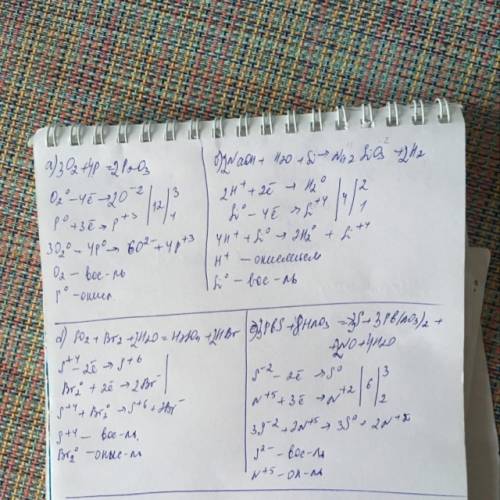 а) 3O₂+4P=2P₂O₃
O₂⁰ – 4ē → 2O⁻² | 12 | 3
P⁰ + 3ē → P⁺³ | 1
3O₂⁰ – 4P⁰ → 6O²⁻ + 4P⁺³
O₂ – вос-ль
P⁰ – окисл.
2NaOH + H₂O + Si → Na₂SiO₃ + 2H₂
2H⁺ + 2ē → H₂⁰ | 4 | 2
Si⁰ – 4ē → Si⁺⁴ | 1
4H⁺ + Si⁰ → 2H₂⁰ + Si⁺⁴
H⁺ – окислитель
Si⁰ – вос-ль
SO₂ + Br₂ + 2H₂O = H₂SO₄ + 2HBr
S⁺⁴ – 2ē → S⁺⁶
Br₂⁰ + 2ē → 2Br⁻
S⁺⁴ + Br₂⁰ → S⁺⁶ + 2Br⁻
S⁺⁴ – вос-ль
Br₂⁰ – окис-ль
3PbS + 8HNO₃ → 3S + 3Pb(NO₃)₂ +
2NO + 4H₂O
S⁻² – 2ē → S⁰ | 6 | 3
N⁺⁵ + 3ē → N⁺² | 2
3S⁻² + 2N⁺⁵ → 3S⁰ + 2N⁺²
S²⁻ – вос-ль
N⁺⁵ – ок-ль